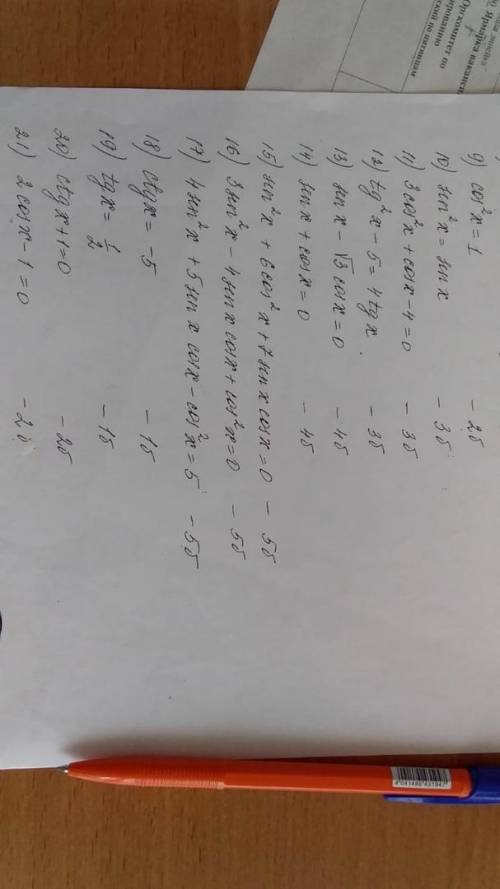 Ярмарка ваканси
Оргкомитет по
9) cos²x = 1 - 2б
10) sin²x = sin x - 3б
11) 3cos²x + cos x - 4 = 0 - 3б
12) tg²x - 5 = 4 tg x - 3б
13) sin x - √3 cos x = 0 - 4б
14) sin x + cos x = 0 - 4б
15) sin²x + 6cos²x + 7sin x cos x = 0 - 5б
16) 3sin²x - 4sin x cos x + cos²x = 0 - 5б
17) 4sin²x + 5sin x cos x - cos²x = 5 - 5б
18) ctg x = -5 - 1б
19) tg x = 1/2 - 1б
20) ctg x + 1 = 0 - 2б
21) 2 cos x - 1 = 0 - 2б